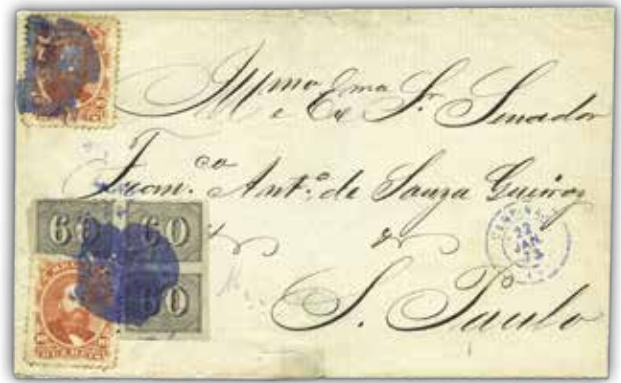 Illmo e Exmo Sr. Senador
Francº. Antº. de Souza Queiroz
S. Paulo
60 60
60
22
JAN